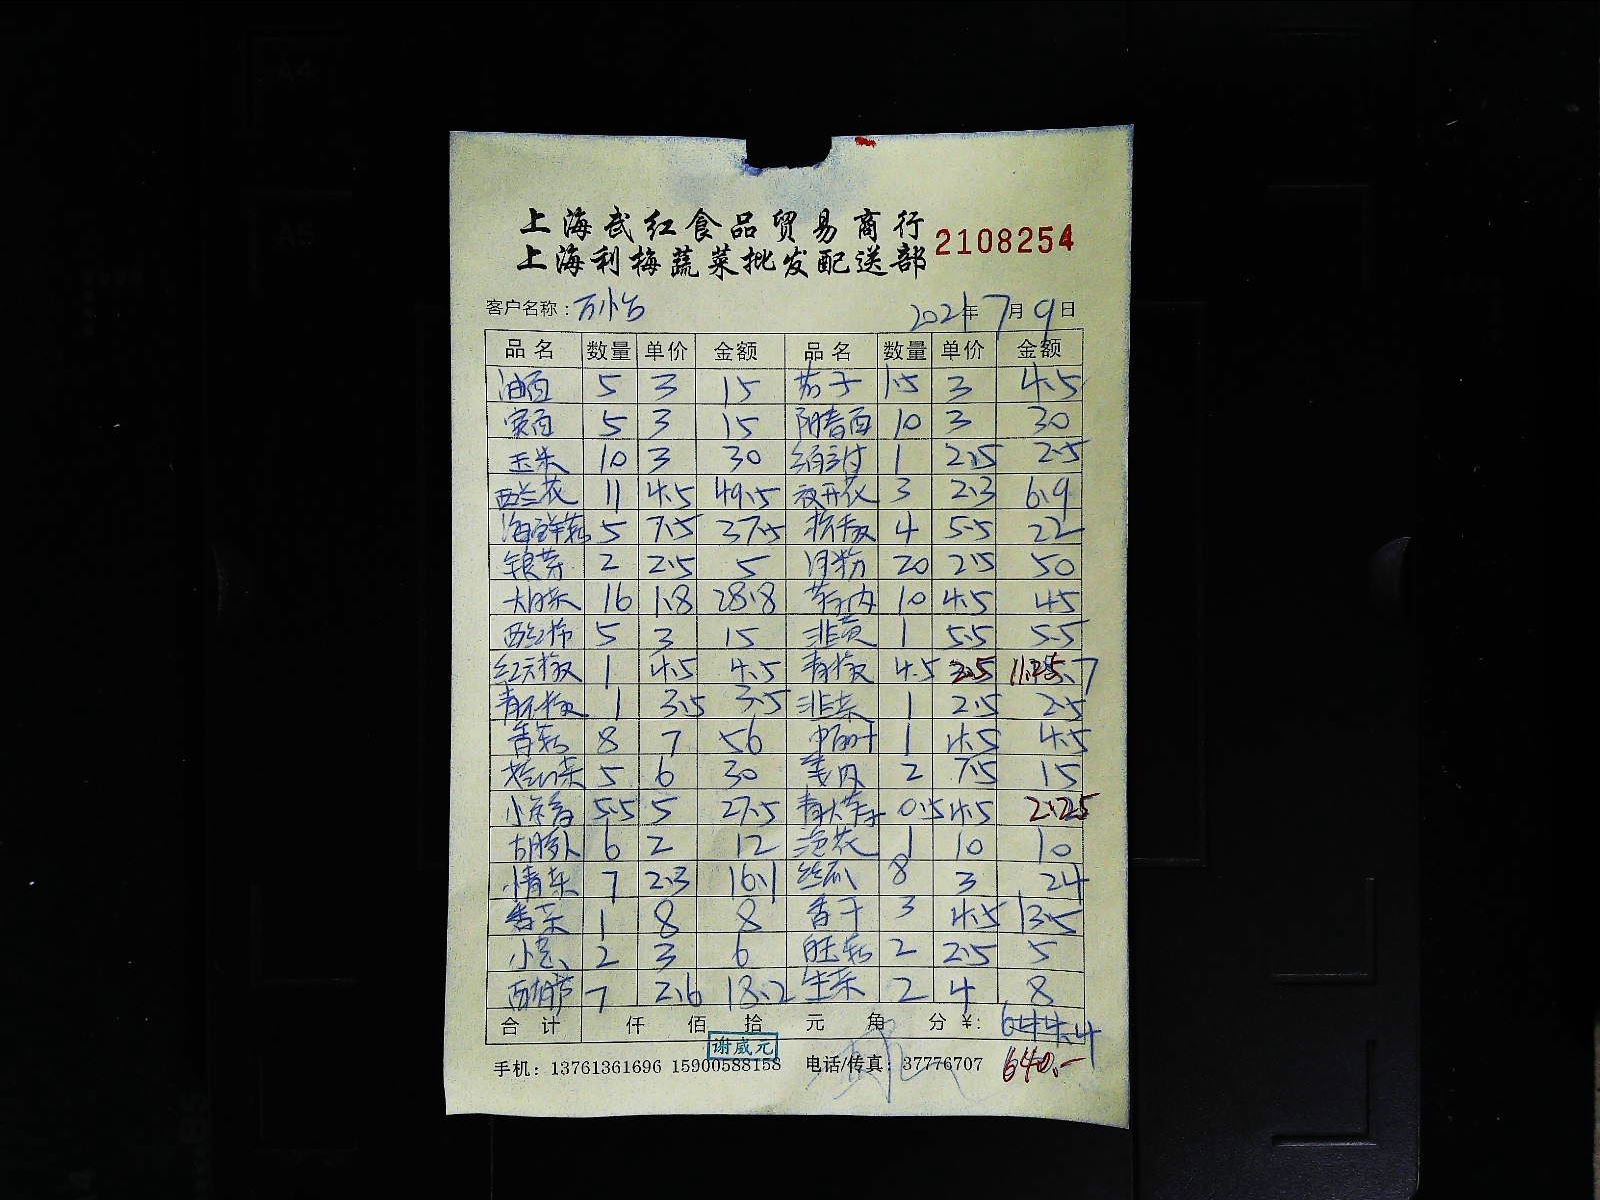 上海武红食品贸易商行
上海利梅蔬菜批发配送部 2108254
客户名称: 万小台 2021年7月9日
品名 数量 单价 金额 品名 数量 单价 金额
油面 5 3 15 茄子 1.5 3 4.5
宽面 5 3 15 阳春面 10 3 30
玉米 10 3 30 1 2.5 2.5
西兰花 11 4.5 49.5 夜开花 3 2.3 6.9
海鲜菇 5 7.5 37.5 杭椒 4 5.5 22
银芽 2 2.5 5 河粉 20 2.5 50
大白菜 16 1.8 28.8 10 4.5 45
西红柿 5 3 15 韭黄 1 5.5 5.5
红尖椒 1 4.5 4.5 青椒 4.5 2.5 11.25
青尖椒 1 3.5 3.5 韭菜 1 2.5 2.5
香菇 8 7 56 中 1 4.5 4.5
5 6 30 姜肉 2 7.5 15
小米 5.5 5 27.5 0.5 4.5 2.25
胡萝卜 6 2 12 葱花 1 10 10
小青菜 7 2.3 16.1 丝瓜 8 3 24
香菜 1 8 8 香干 3 4.5 13.5
小葱 2 3 6 2 2.5 5
西葫芦 7 2.6 18.2 生菜 2 4 8
合计 仟 佰 拾 元 角 分 ¥: 644.4
谢威元
手机: 13761361696 15900588158 电话/传真: 37776707 640.-